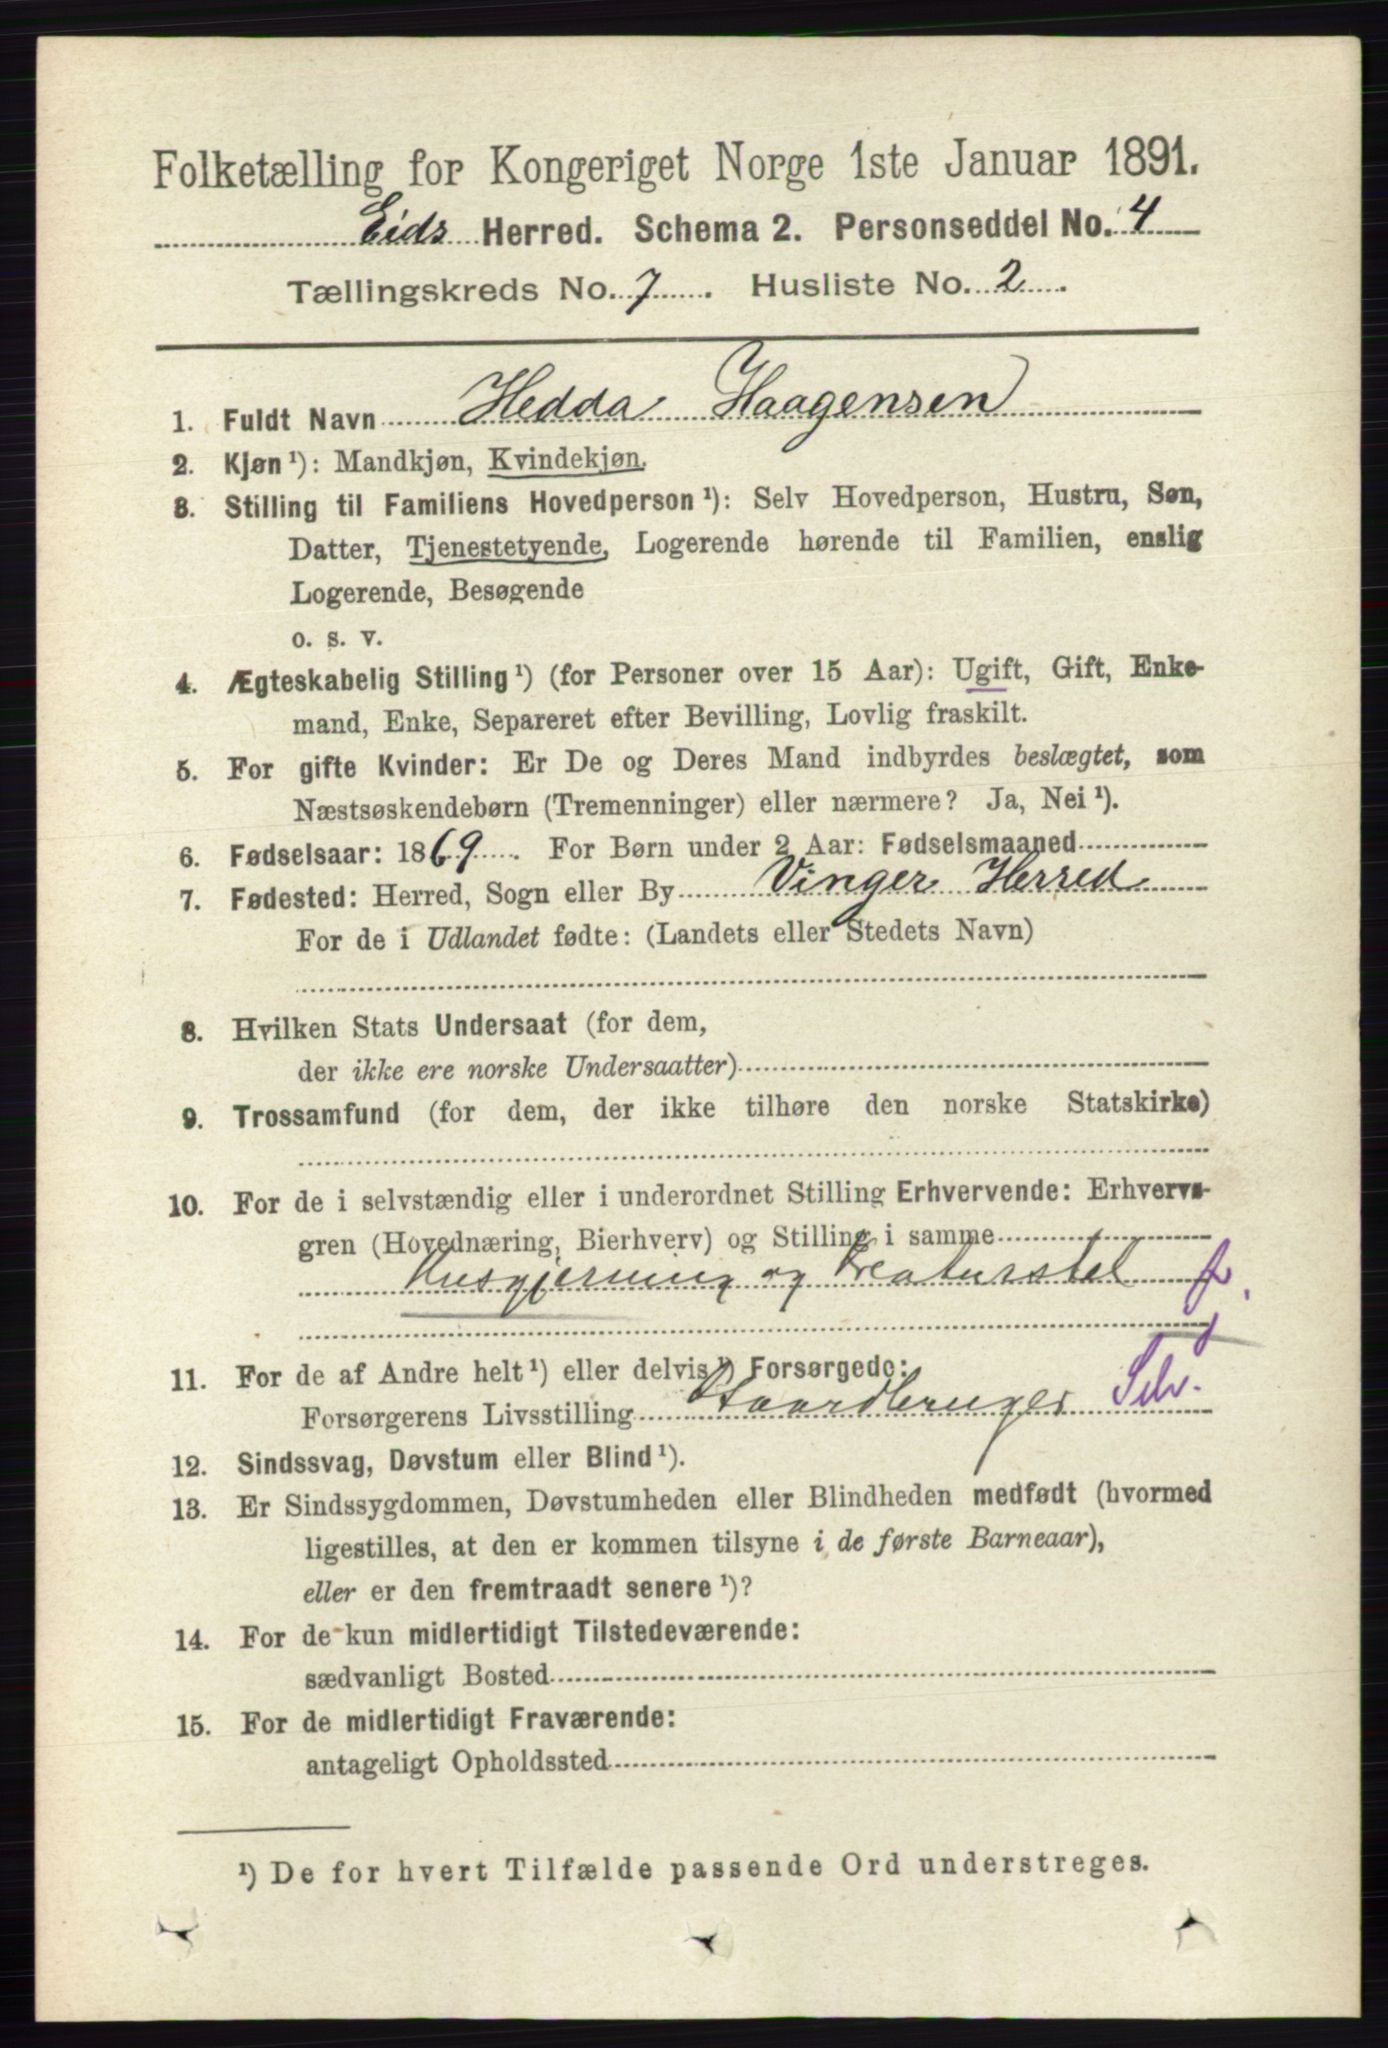 Folketælling for Kongeriget Norge 1ste Januar 1891.
Eids Herred. Schema 2. Personseddel No. 4
Tællingskreds No. 7. Husliste No. 2.
1. Fuldt Navn Hedda Haagensen
2. Kjøn ¹): Mandkjøn, Kvindekjøn.
3. Stilling til Familiens Hovedperson ¹): Selv Hovedperson, Hustru, Søn,
Datter, Tjenestetyende, Logerende hørende til Familien, enslig
Logerende, Besøgende
o. s. v.
4. Ægteskabelig Stilling ¹) (for Personer over 15 Aar): Ugift, Gift, Enke-
mand, Enke, Separeret efter Bevilling, Lovlig fraskilt.
5. For gifte Kvinder: Er De og Deres Mand indbyrdes beslægtet, som
Næstsøskendebørn (Tremenninger) eller nærmere? Ja, Nei ¹).
6. Fødselsaar: 1869. For Børn under 2 Aar: Fødselsmaaned
7. Fødested: Herred, Sogn eller By Vinger Herred
For de i Udlandet fødte: (Landets eller Stedets Navn)
8. Hvilken Stats Undersaat (for dem,
der ikke ere norske Undersaatter)
9. Trossamfund (for dem, der ikke tilhøre den norske Statskirke)
10. For de i selvstændig eller i underordnet Stilling Erhvervende: Erhvervs-
gren (Hovednæring, Bierhverv) og Stilling i samme
Husgjerning og Kreaturstel f.
11. For de af Andre helt ¹) eller delvis ¹) Forsørgede:
Forsørgerens Livsstilling Gaardbruger Selv.
12. Sindssvag, Døvstum eller Blind ¹).
13. Er Sindssygdommen, Døvstumheden eller Blindheden medfødt (hvormed
ligestilles, at den er kommen tilsyne i de første Barneaar),
eller er den fremtraadt senere ¹)?
14. For de kun midlertidigt Tilstedeværende:
sædvanligt Bosted
15. For de midlertidigt Fraværende:
antageligt Opholdssted
¹) De for hvert Tilfælde passende Ord understreges.